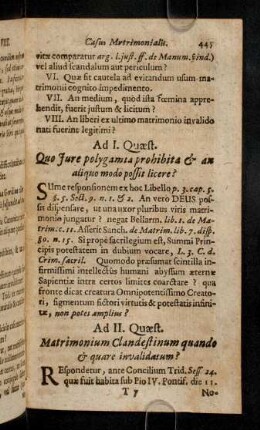 Casus Matrimonialis. 445
vitæ comparatur arg. l. just. ff. de Manum. vind.)
vel aliud scandalum aut periculum?
VI. Quæ sit cautela ad evitandum usum matrimonii
cognito impedimento.
VII. An medium, quod ista fœmina apprehendit,
fuerit justum & licitum?
VIII. An liberi ex ultimo matrimonio invalido
nati fuerint legitimi?
Ad I. Quæst.
Quo Jure polygamia prohibita & an
aliquo modo possit licere?
SUme responsionem ex hoc Libello p. 3. cap. 5.
§. 5. Sect. 9. n. 1. & 2. An vero DEUS possit
dispensare, ut una uxor pluribus viris matrimonio
jungatur? negat Bellarm. lib. 1. de Matrim.
c. 11. Asserit Sanch. de Matrim. lib. 7. disp.
80. n. 15. Si propè sacrilegium est, Summi Principis
potestatem in dubium vocare, L. 3. C. d.
Crim. sacril. Quomodo præsumat scintilla infirmissimi
intellectus humani abyssum æternæ
Sapientiæ intra certos limites coarctare? qua
fronte dicat creatura Omnipotentissimo Creatori,
figmentum factori virtutis & potestatis infinitæ,
non potes amplius?
Ad II. Quæst.
Matrimonium Clandestinum quando
& quare invalidatum?
REspondetur, ante Concilium Trid. Sess 24.
quæ fuit habita sub Pio IV. Pontif. die 11.
T 7 No-